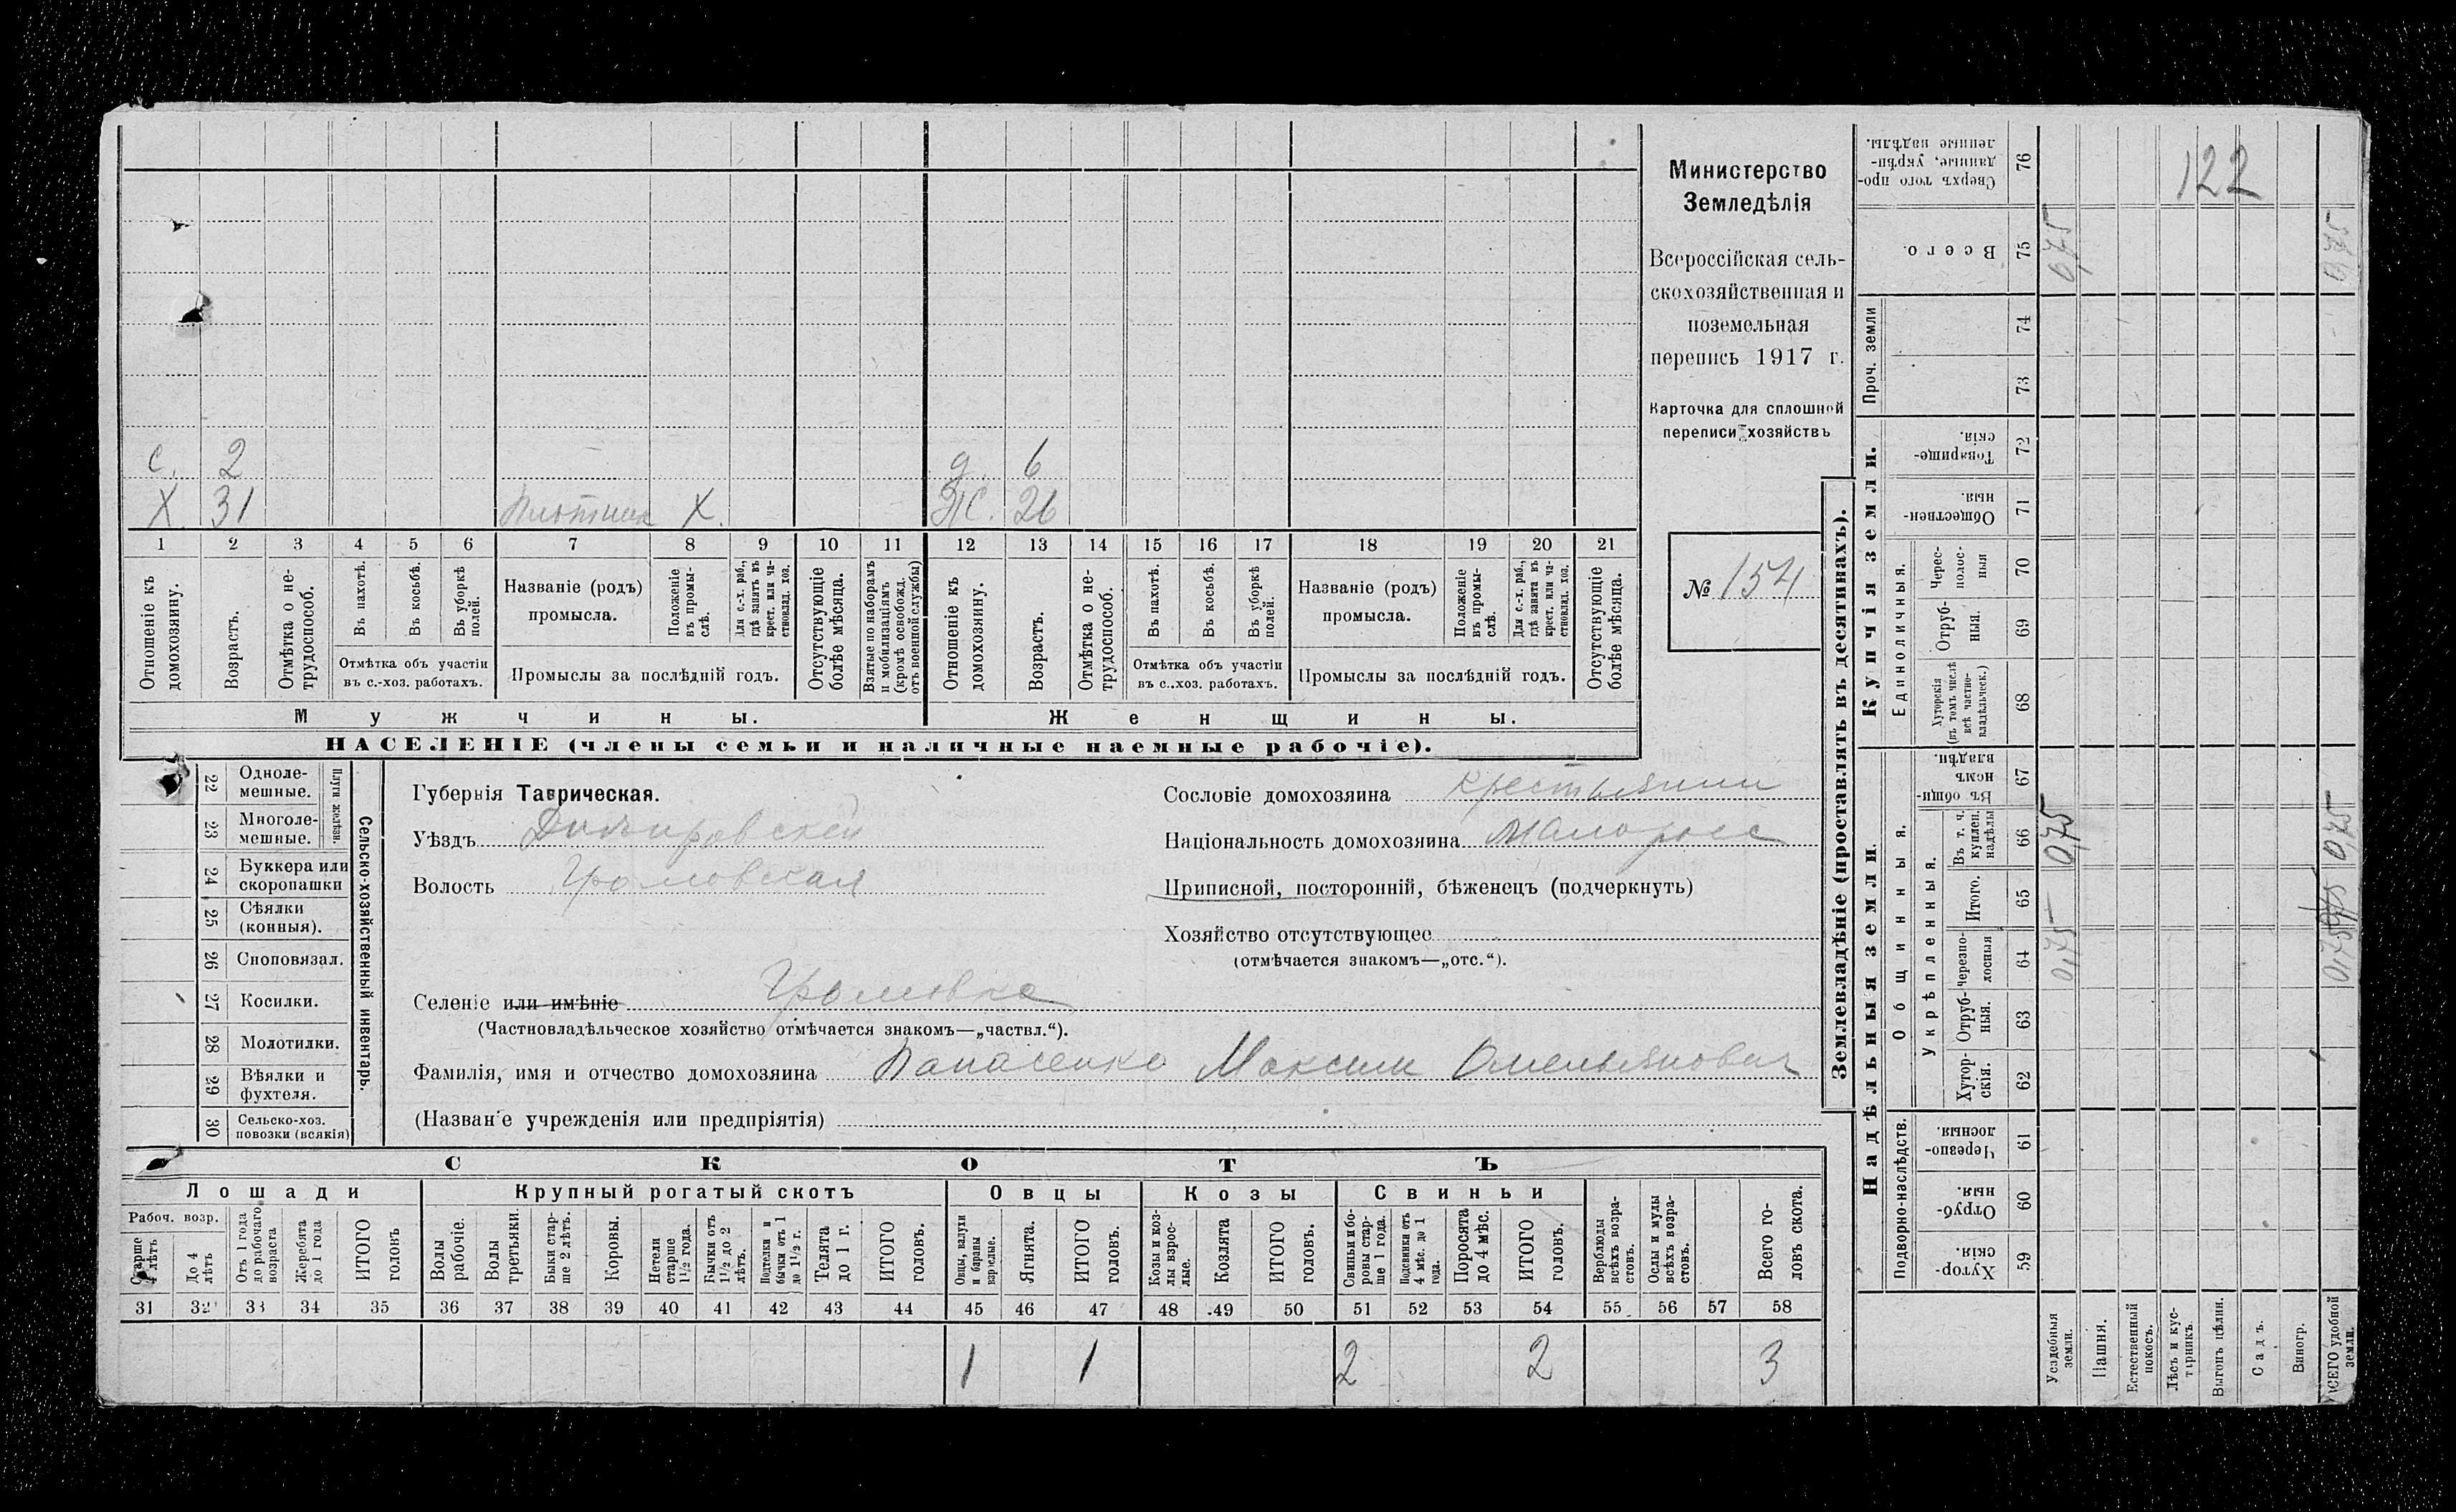 Министерство
Земледѣлія
Всероссійская сель-
скохозяйственная и
поземельная
перепись 1917 г.
Карточка для сплошной
переписи хозяйствъ
№ 154
С. 2
д. 6
Х. 31 Плотник Х.
Ж. 26
1 2 3 4 5 6 7 8 9 10 11 12 13 14 15 16 17 18 19 20 21
Отношеніе къ домохозяину.
Возрастъ.
Отмѣтка о не-трудоспособ.
Въ пахотѣ.
Въ косьбѣ.
Въ уборкѣ полей.
Отмѣтка объ участіи
въ с.-хоз. работахъ.
Названіе (родъ)
промысла.
Положеніе въ промы-слѣ.
Для с.-х. раб., гдѣ занятъ въ крест. или ча-стновлад. хоз.
Промыслы за послѣдній годъ.
Отсутствующіе болѣе мѣсяца.
Взятые по наборамъ и мобилизаціямъ (кромѣ освобожд. отъ военной службы)
Отношеніе къ домохозяину.
Возрастъ.
Отмѣтка о не-трудоспособ.
Въ пахотѣ.
Въ косьбѣ.
Въ уборкѣ полей.
Отмѣтка объ участіи
въ с.-хоз. работахъ.
Названіе (родъ)
промысла.
Положеніе въ промы-слѣ.
Для с.-х. раб., гдѣ занята въ крест. или ча-стновлад. хоз.
Промыслы за послѣдній годъ.
Отсутствующіе болѣе мѣсяца.
Мужчины.
Женщины.
НАСЕЛЕНІЕ (члены семьи и наличные наемные рабочіе).
Сельско-хозяйственный инвентарь.
Плуги желѣзн.
22 Одноле-мешные.
23 Многоле-мешные.
24 Буккера или скоропашки
25 Сѣялки (конныя).
26 Сноповязал.
27 Косилки.
28 Молотилки.
29 Вѣялки и фухтеля.
30 Сельско-хоз. повозки (всякія)
Губернія Таврическая.
Уѣздъ Днѣпровскій
Волость Громовская
Селеніе или имѣніе Громовка
(Частновладѣльческое хозяйство отмѣчается знакомъ—„частвл.“).
Фамилія, имя и отчество домохозяина Панасенко Максим Омельянович
(Названіе учрежденія или предпріятія)
Сословіе домохозяина крестьянин
Національность домохозяина Малоросс
Приписной, посторонній, бѣженецъ (подчеркнуть)
Хозяйство отсутствующее
(отмѣчается знакомъ—„отс.“).
СКОТЪ
Лошади
Крупный рогатый скотъ
Овцы
Козы
Свиньи
Рабоч. возр.
Старше 4 лѣтъ
До 4 лѣтъ
Отъ 1 года до рабочаго возраста
Жеребята до 1 года
ИТОГО головъ
Волы рабочіе.
Волы третьяки.
Быки стар-ше 2 лѣтъ.
Коровы.
Нетели старше 1½ года.
Бычки отъ 1½ до 2 лѣтъ.
Подтелки и бычки отъ 1 до 1½ г.
Телята до 1 г.
ИТОГО головъ.
Овцы, валухи и бараны взрослые.
Ягнята.
ИТОГО головъ.
Козы и коз-лы взрос-лые.
Козлята
ИТОГО головъ.
Свиньи и бо-ровы стар-ше 1 года.
Подсвинки отъ 4 мѣс. до 1 года.
Поросята до 4 мѣс.
ИТОГО головъ.
Верблюды всѣхъ возра-стовъ.
Ослы и мулы всѣхъ возра-стовъ.
Всего го-ловъ скота.
31 32 33 34 35 36 37 38 39 40 41 42 43 44 45 46 47 48 49 50 51 52 53 54 55 56 57 58
1 1 2 2 3
Землевладѣніе (проставлять въ десятинахъ).
Купчія земли.
Надѣльныя земли
Проч. земли
Единоличныя.
Общинныя.
Укрѣпленныя.
Подворно-наслѣдств.
Сверхъ того про-данные, укрѣп-ленные надѣлы. 76
Всего. 75
74
73
Товарище-скія. 72
Обществен-ныя. 71
Черес-полос-ныя 70
Отруб-ныя. 69
Хуторскія (въ томъ числѣ всѣ частно-владѣльческ.) 68
Въ общин-номъ владѣн. 67
Въ т. ч. куплен. надѣлы 66
Итого. 65
черезпо-лосныя 64
Отруб-ныя. 63
Хутор-скія. 62
Черезпо-лосныя. 61
Отруб-ныя. 60
Хутор-скія. 59
Усадебныя земли.
Пашня.
Естественный покосъ.
Лѣсъ и кус-тарникъ.
Выгонъ цѣлин.
Садъ.
Виногр.
ВСЕГО удобной земли.
122
0,75
0,75
0,75
0,75
0,75
0,75
0,75